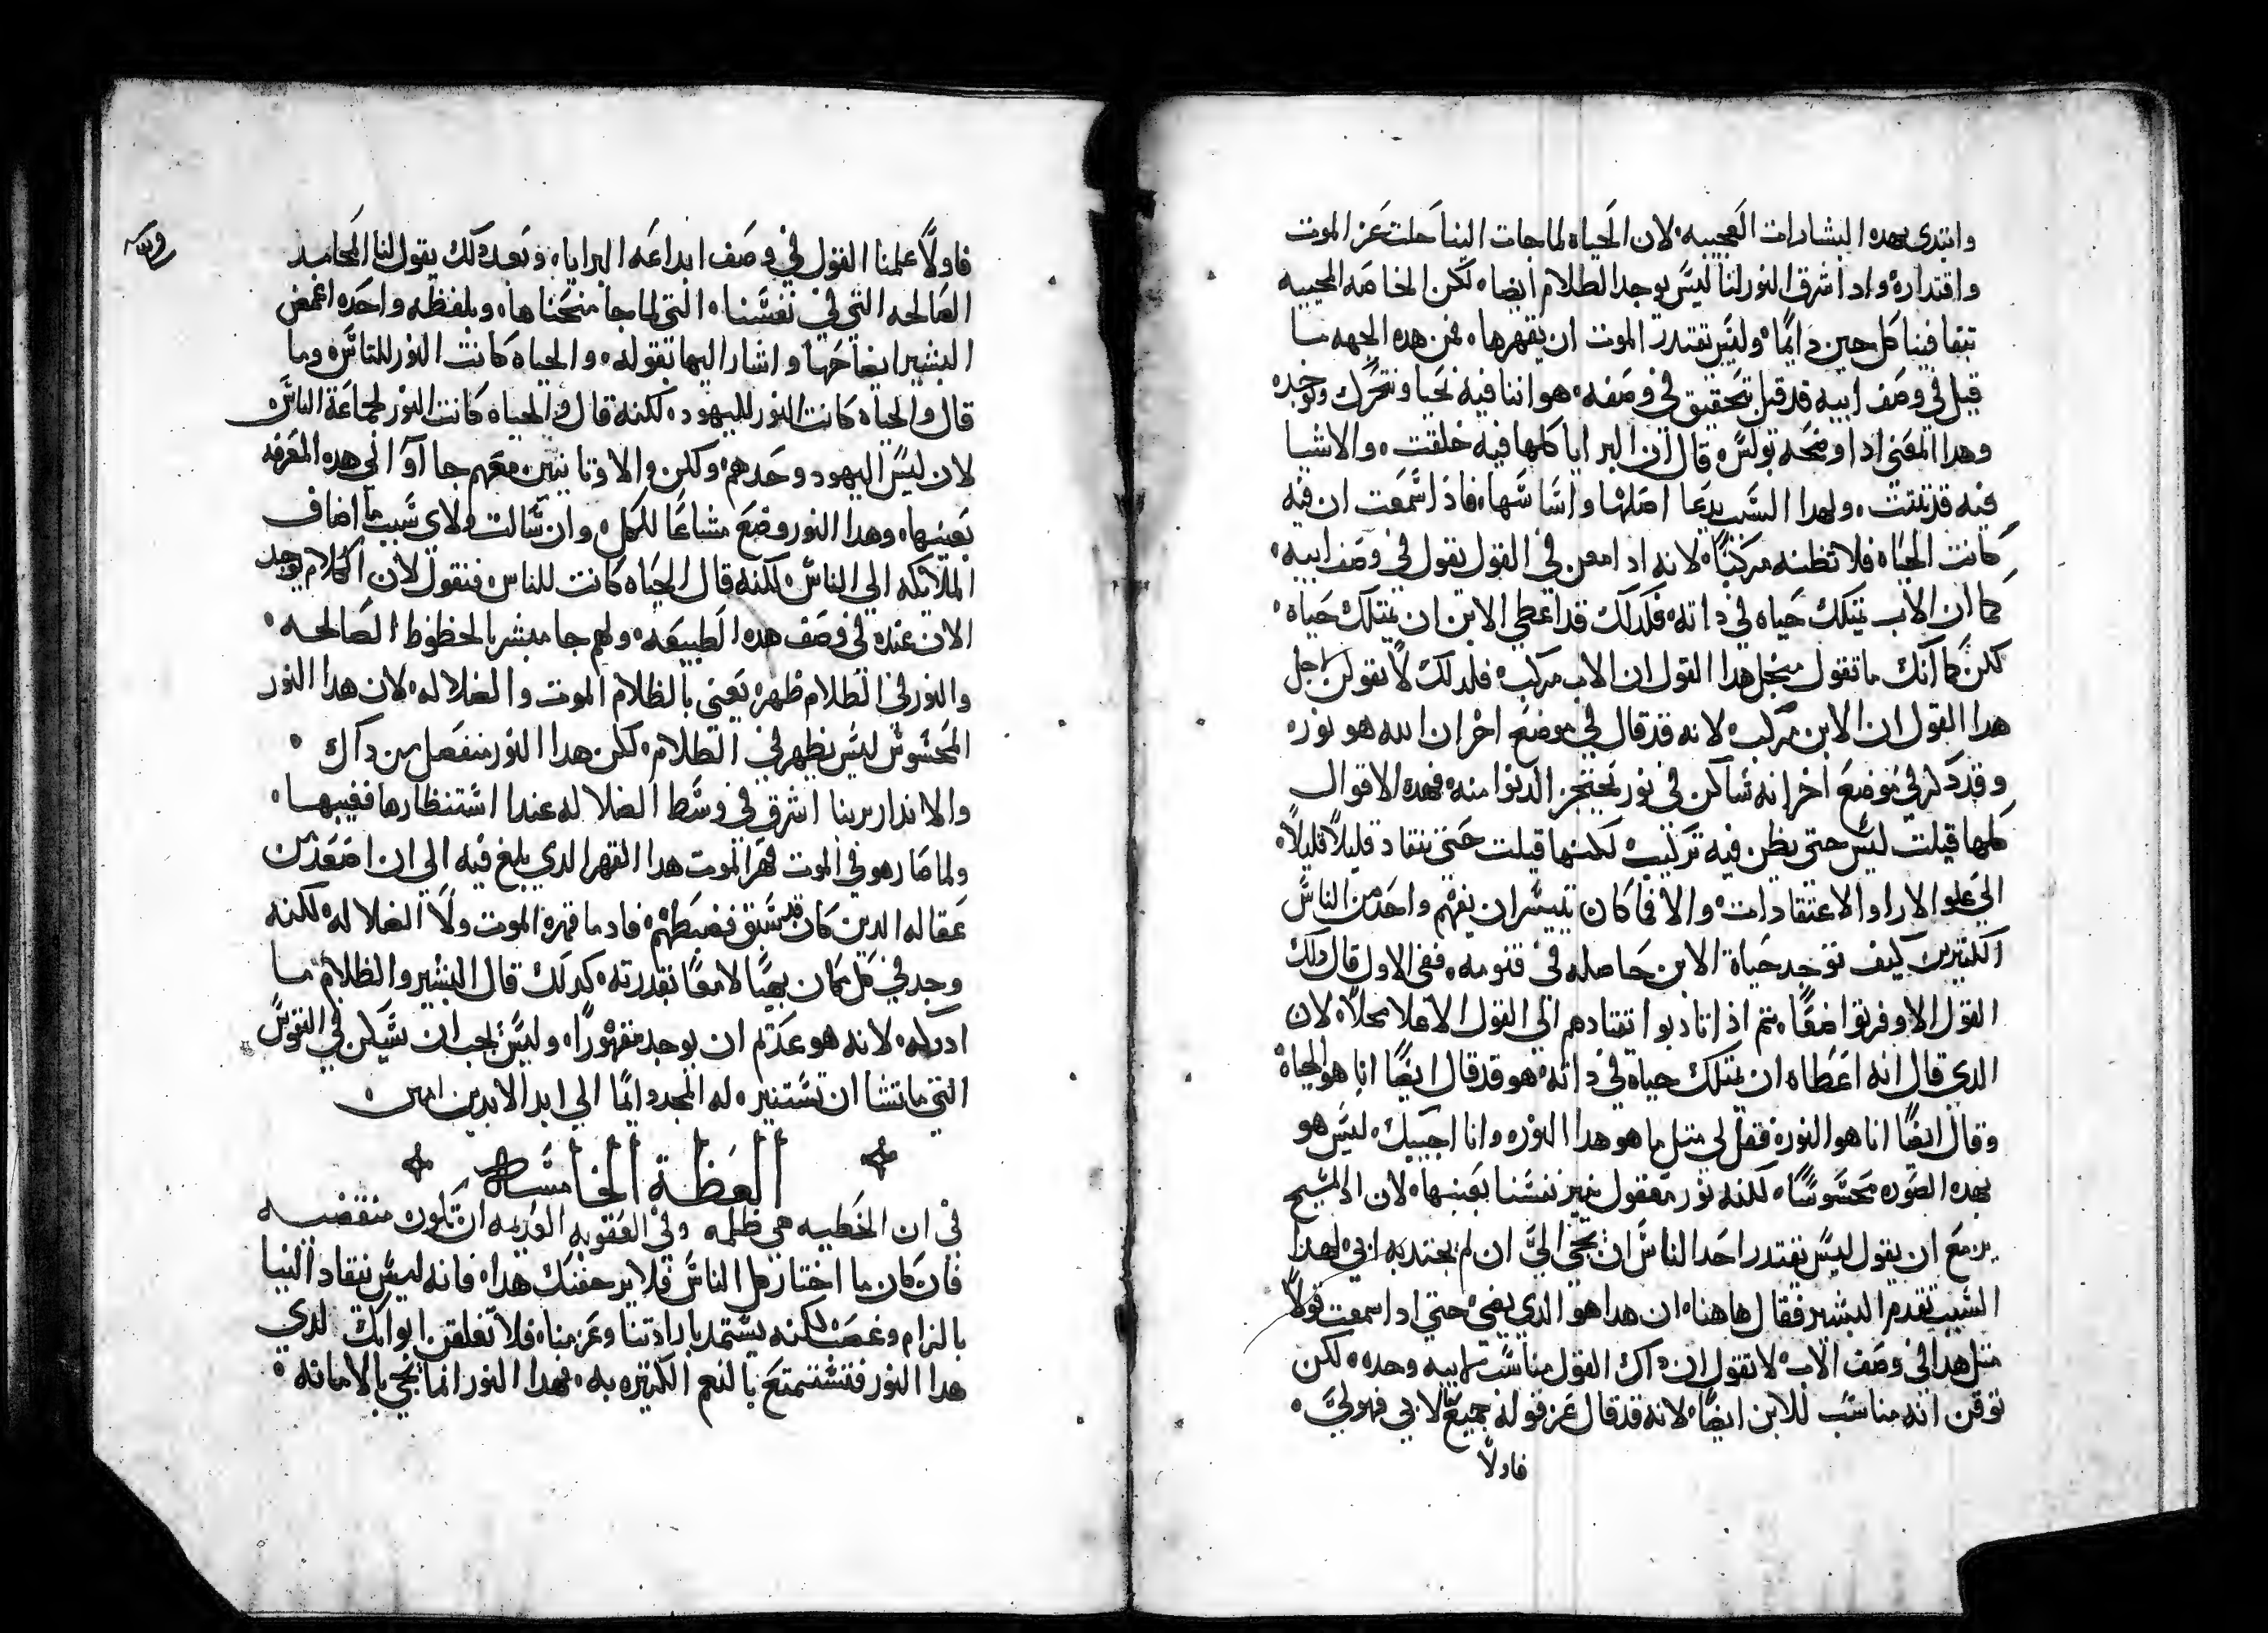 وابتدى بهده البشارات العجيبه لان الحياه لما جات الينا حلت عز الموت
واقتداره واد اشرق النور لنا ليس يوجد الطلام ايضا لكن الخاصه المحييه
تبقا فينا كل حين دايمًا وليس تقتدر الموت ان يقهرها فمن هده الجهه ما
قيل في وصف ابيه قد قيل بتحقيق في وصفه هو اننا فيه نحيا ونتحرك ونوجد
وهدا المعنى ادا وضحه بولس قال ان البرايا كلها فيه خلقت والاشيا
فيه قد تبتت ولهدا السبب يدعا اصلها واساسها فاذ اسمعت ان فيه
كانت الحياه فلا تظنه مركبًا لانه ادا معن في القول يقول في وصف ابيه
كما ان الاب يمتلك حياه في داته فكدلك قد اعطي الابن ان يمتلك حياه
لكن كما انك ما تقول منجل هدا القول ان الاب مركب فلدلك لا تقولن لاجل
هدا القول ان الابن مركب لانه قد قال في موضع اخر ان الله هو نوره
وقد دكر في موضع اخر انه ساكن في نور يعتجز الدنوا منه فهده الاقوال
كلها قيلت ليس حتى يظن فيه تركيب لكنها قيلت حتى نتقاد قليلاً قليلاً
الى علو الارا والاعتقادات والا فما كان يتيسر ان يفهم واحد من الناس
الكتيرين كيف توجد حياة الابن حاصله في قنومه ففى الاول قال دلك
القول الاوفر تواضعًا تم اذا تادبوا تقتادهم الي القول الاعلا محلاً لان
الدي قال انه اعطاه ان يمتلك حياة في داته هو قد قال ايضًا انا هو الحياة
وقال ايضًا انا هو النور فقل لي متل ما هو هدا النور وانا اجيبك ليس هو
بهده الصوره محسوسًا لكنه نور معقول ينير نفسنا بعينها لان المسيح
يزمع ان يقول ليس يقتدر احد الناس ان يجي اليَّ ان لم يجتدبه ابي لهدا
السبب تقدم البشير فقال هاهنا ان هدا هو الدي يضي حتى ادا سمعت قولاً
متل هدا في وصف الاب لا تقول ان داك القول مناسب لابيه وحده لكن
توقن انه مناسب للابن ايضًا لانه قد قال عز قوله جميع ما لابي فهو لي
فاولاً
فاولاً علمنا القول في وصف ابداعه البرايا وبعد دلك يقول لنا المحامد
الصالحه التي في نفسنا التي لما جا منحنا ها وبلفظه واحده اغمض
البشير ايضاحها واشار اليها بقوله والحياه كانت النور للناس وما
قال والحياه كانت النور لليهود لكنه قال والحياه كانت النور لجماعة الناس
لان ليس اليهود وحدهم ولكن والاوتانيين معهم جا اوا الي هده المعرفه
بعينها وهدا النور وضع مشاعًا للكل وان سالت ولاى سبب ما اضاف
الملايكه الي الناس لكنه قال الحياه كانت للناس فنقول لان الكلام يوجد
الان عنده في وصف هده الطبيعه ولهم جا مبشرا بالحظوظ الصالحه
والنور في الظلام ظهر يعني بالظلام الموت والضلاله لان هدا النور
المحسوس ليس يظهر في الظلام لكن هدا النور منفصل من داك
والاندار بربنا اشرق في وسط الضلاله عندا استنظارها فغيبها
ولما صار هو في الموت قهر الموت هدا القهر الدي بلغ فيه الى ان اصعد من
عقاله الدين كان قد سبق فضبطهم فاد ما قهره الموت ولا الضلاله لكنه
وجد في كل مكان بهيًا لامعًا بقدرته كدلك قال البشير والظلام ما
ادركه لانه هو عدم ان يوجد مقهورًا وليس يجب ان يسكن في النفوس
التي ما تشا ان تستنير له المجد دايمًا الي ابد الابدين امين
العظة الخامسه
في ان الخطيه هي ظلمه وفي العقوبه العزيمه ان تكون منقضيه
فان كان ما اختار كل الناس فلا يزحفنك هدا فانه ليس نتقاد الينا
بالزام وغصب لكنه يستمد بارادتنا وعزمنا فلا تغلقن ابوابك لدي
هدا النور فتستمتع بالنعم الكتيره به فهدا النور انما يجي بالامانه